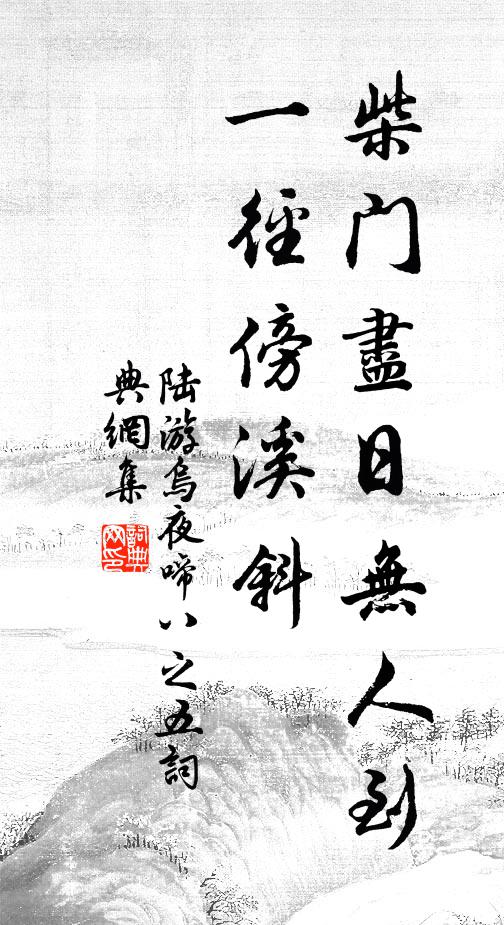 柴門盡日無人到
一徑傍溪斜
陸游烏夜啼八之五詞
典網集
詞典
网印